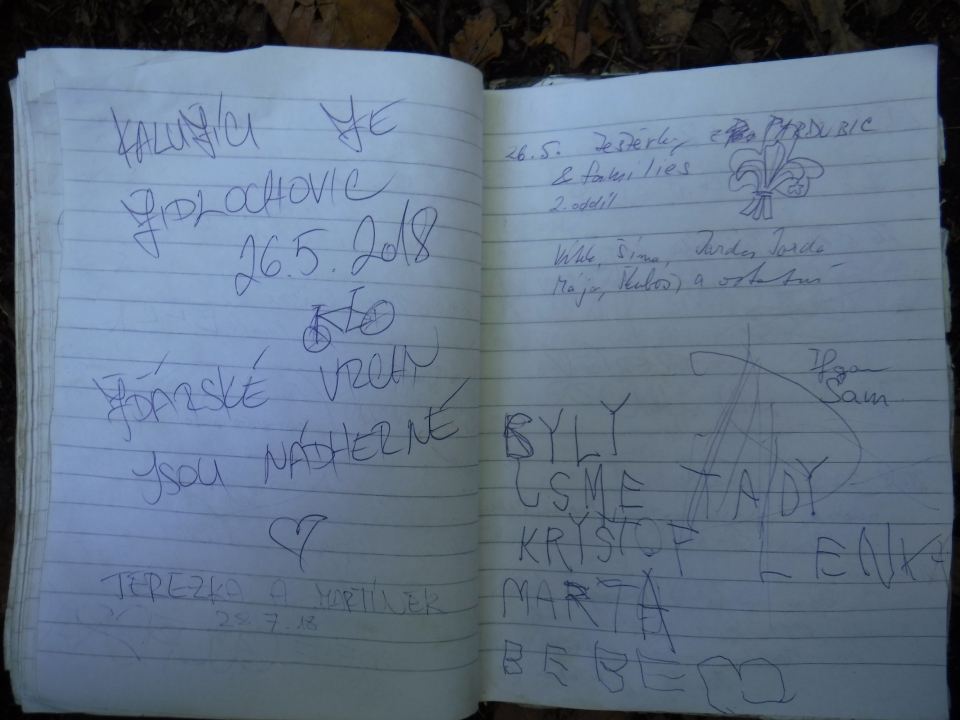 KALUŽÍCI ŽE
ŽIDLOCHOVIC
26.5.2018
ŽĎÁRSKÉ VRCHY
JSOU NÁDHERNÉ
TEREZKA A MARTÍNEK
28.7.18
26.5. Ještěrky, z PARDUBIC
& families
2. oddíl
Šíma, Jarda, Jarda
Mája, Kuboš, a ostatní
Sam
BYLY
JSME TADY
KRYSTOF LENKA
MARTA
BEBE